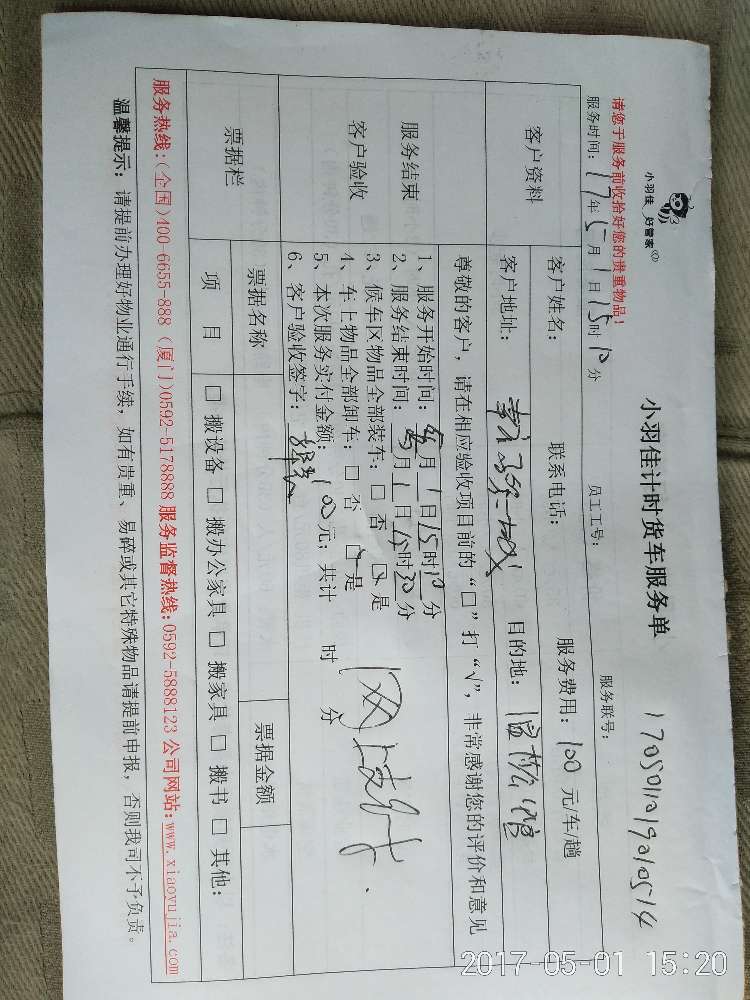 小羽佳 好管家
小羽佳计时货车服务单
请您于服务前收拾好您的贵重物品！
服务联号：
1705011019010514
服务时间：17年5月1日15时10分 员工工号：
客户资料
客户姓名： 联系电话： 服务费用：100元/车/趟
客户地址： 目的地：
服务结束
客户验收
尊敬的客户，请在相应验收项目前的“□”打“√”，非常感谢您的评价和意见
1、服务开始时间：月1日15时10分
2、服务结束时间：5月1日15时30分
3、候车区物品全部装车：□ 否 是
4、车上物品全部卸车：□ 否 是
5、本次服务实付金额：100元；共计 时 分
6、客户验收签字：
网上支付.
票据栏
票据名称 票据金额
项 目 □ 搬设备 □ 搬办公家具 □ 搬家具 □ 搬书 □ 其他：
服务热线:(全国)400-6655-888 (厦门)0592-5178888 服务监督热线:0592-5888123 公司网站:www.xiaoyujia.com
温馨提示：请提前办理好物业通行手续，如有贵重、易碎或其它特殊物品请提前申报，否则我司不予负责。
2017-05-01 15:20